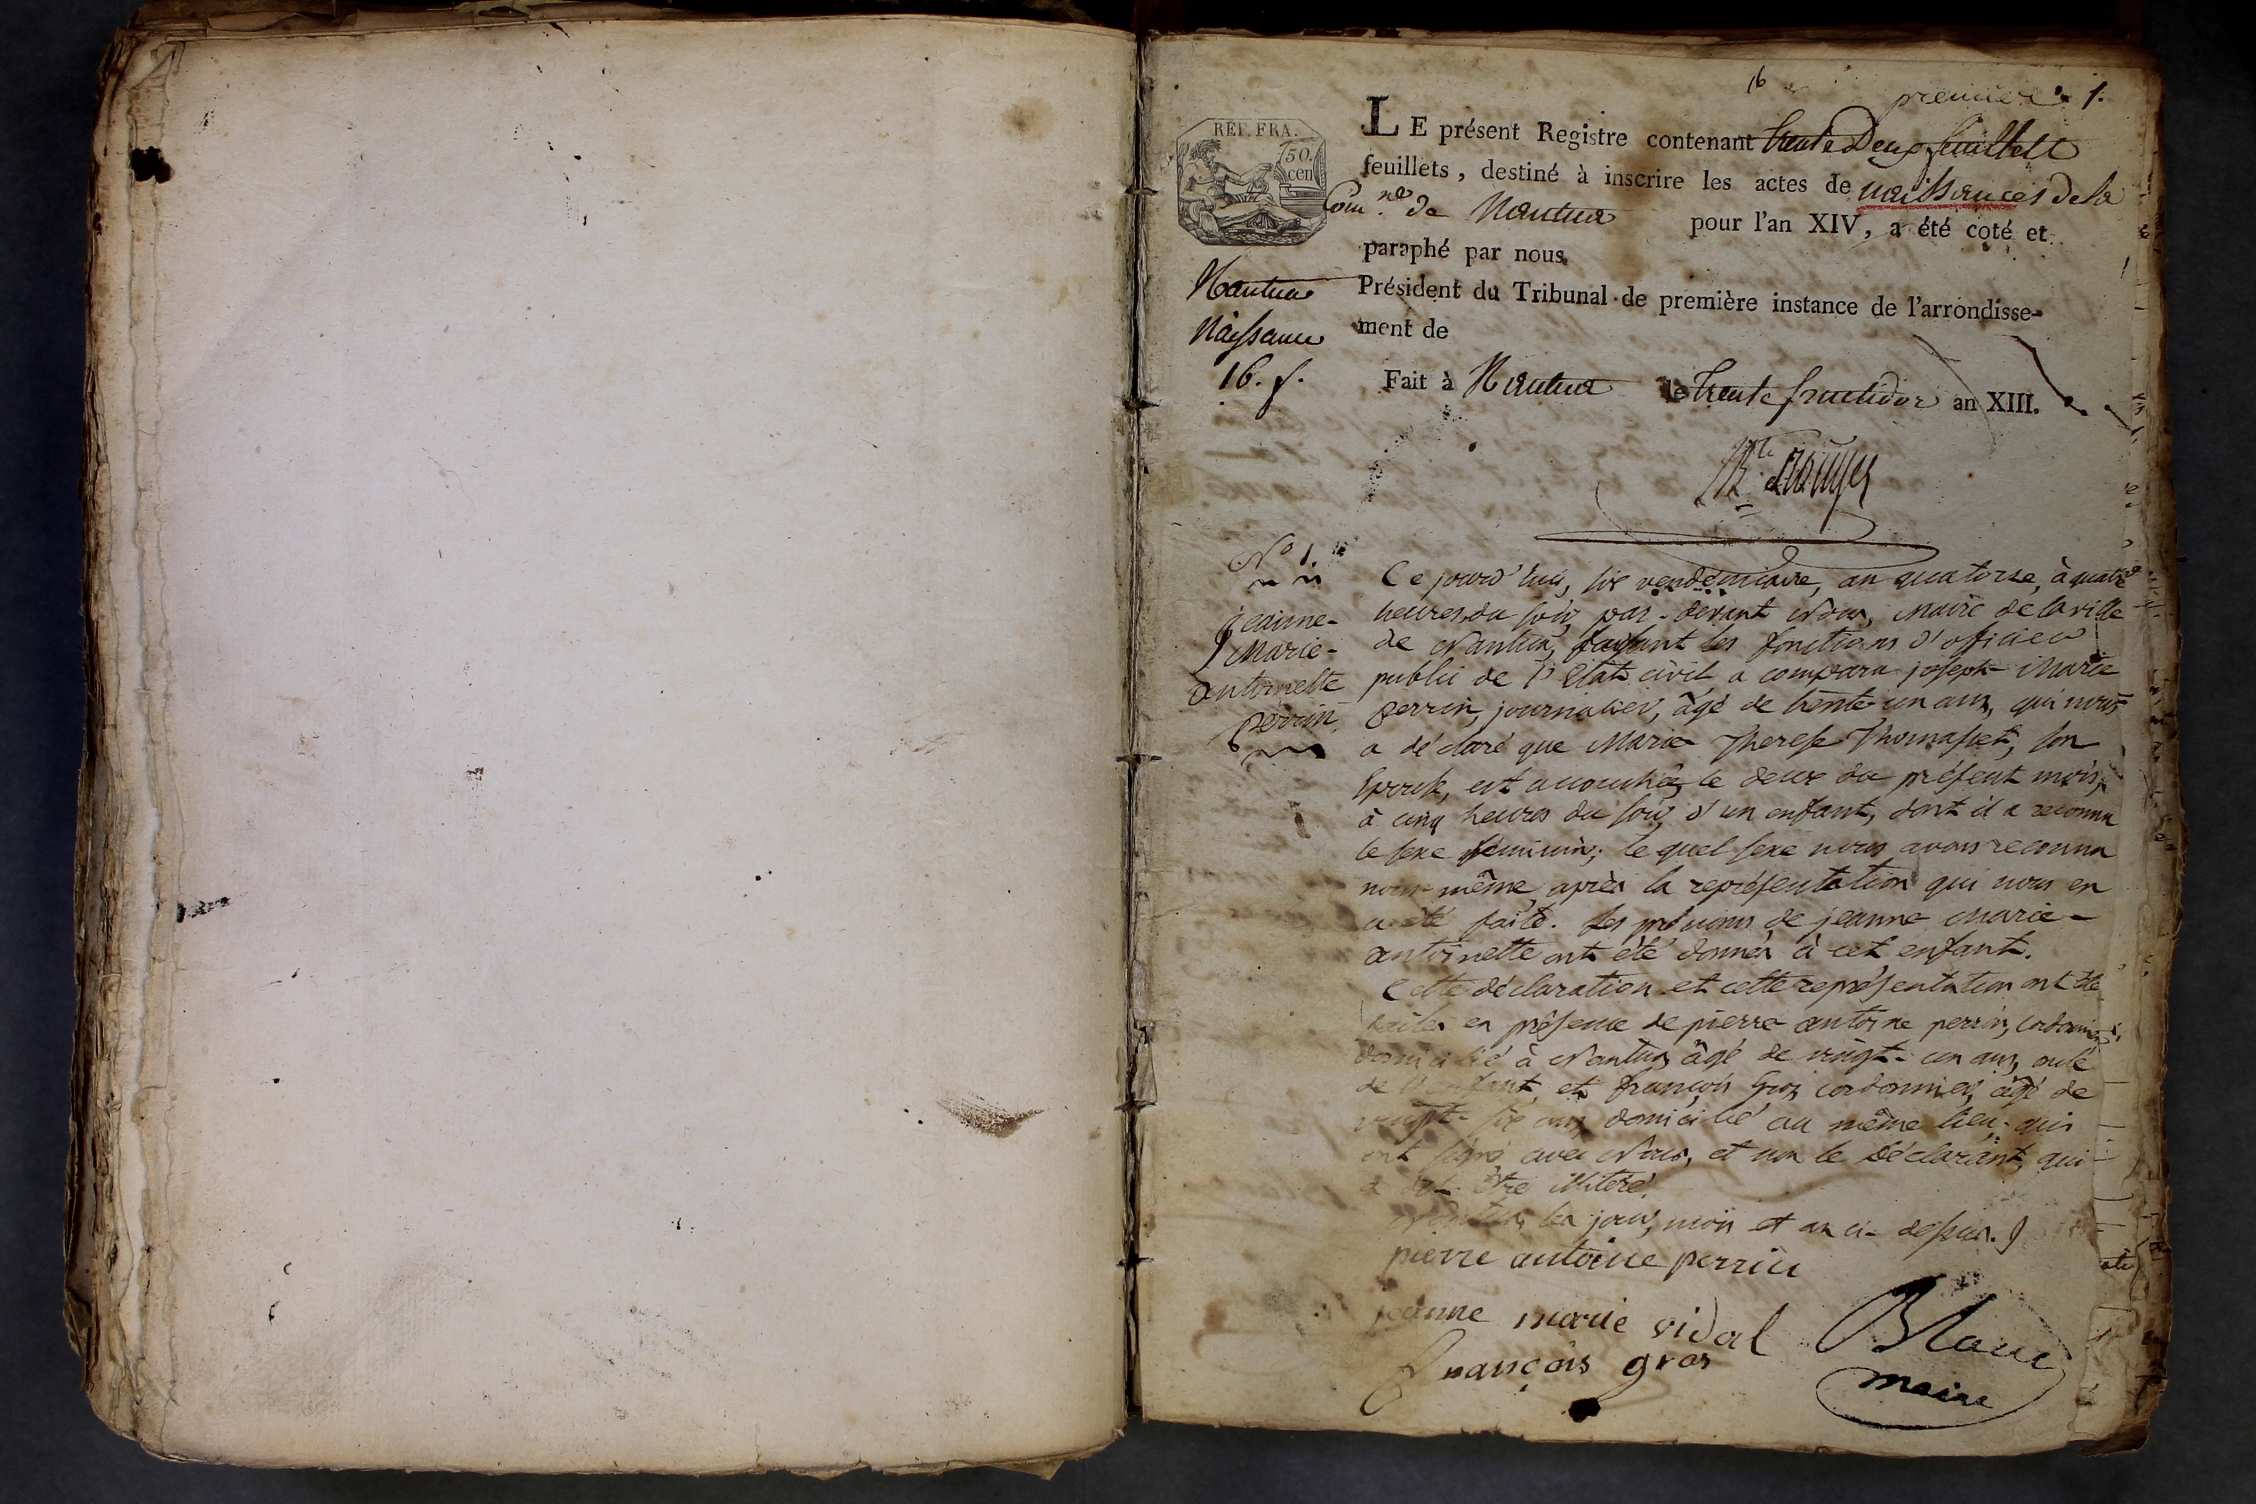 16
premier 1.
REP. FRA.
50.
cen
LE présent Registre contenant trente Deux feuillets
feuillets, destiné à inscrire les actes de naissances de la
Com.ne de Nantua pour l'an XIV, a été coté et
paraphé par nous
Président du Tribunal de première instance de l'arrondisse-
ment de
Nantua
Naissance
16. f.
Fait à Nantua le trente fructidor an XIII.
N° 1.
jeanne-
Marie-
antoinette
perrin
Ce jourd'hui, six vendémiaire, an quatorze, à quatre
heures du soir, par-devant Nous, Maire de la ville
de Nantua, faisant les fonctions d'officier
public de l'Etat civil a comparu joseph Marie
perrin, journalier, âgé de trente un ans, qui nous
a déclaré que Marie Therese Thomasset, son
Epouse, est accouchée, le deux du présent mois,
à cinq heures du soir, d'un enfant, dont il a reconnu
le sexe féminin; le quel sexe nous avons reconnu
nous même, après la représentation qui nous en
a été faite. Les prénoms de jeanne Marie-
antoinette ont été donnés à cet enfant.
Cette déclaration et cette représentation ont été
faites en présence de pierre antoine perrin, cordonnier,
domicilié à Nantua, âgé de vingt-un ans, oncle
de l'enfant, et françois Gros, cordonnier, âgé de
vingt-six ans, domicilié au même lieu, qui
ont signé avec Nous, et non le Déclarant, qui
a dit être illiteré.
Nantua, les jour, mois et an ci-dessus.
pierre antoine perrin
jeanne marie vidal
Blanc
françois gros
maire